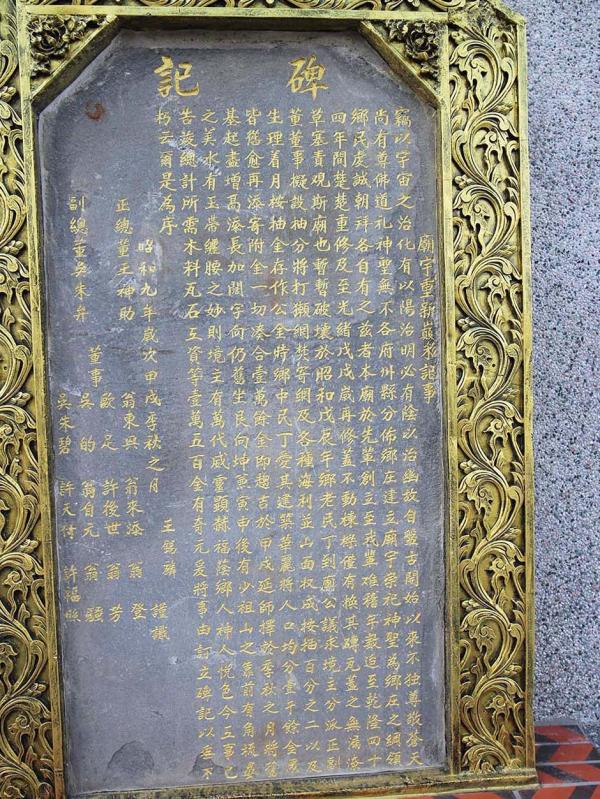 碑記
廟宇重新巖衆記事
竊以宇宙之治化有以陽治明必有陰以治幽故自盤古開始以來不独尊敬蒼天
尚有尊佛道礼神聖無不各府州縣分佈鄉庄建立廟宇崇祀神聖為鄉庄之綱領
鄉民虔誠朝拜各自有之玆者本廟於先輩創立至我輩难稽年載迫至乾隆四十
四年間楚楚重修及至光緒戊戌歲再修蓋不動棟樑僅有換其磚瓦蓋之無漏湊
草塞責观斯廟也暫暫破壞於昭和戊辰年鄉老民丁到廟公議求境主分派正副
董董事擬設抽分將打獺網焚寄網及各種海利並山面权成按抽百分之二以及
生理着月按抽金存作公金時鄉中民丁愛其建築華麗將人口均分壹千餘金
皆慾愈再添寄附金一切湊合壹萬餘金即趨吉於甲戌延師擇於季秋之月將舊
基起盡增高添長加濶字向仍舊坐艮向坤兼寅申後有少祖山之靠前有角流
之美水有玉帶纏腰之妙則境主有萬代威靈顕赫福蔭鄉人神人悅色今工事已
告竣總計所需木料瓦石工資等壹萬五百金有奇元爰將事由訂立碑記以垂不
朽云爾是為序
王錫 謹識
昭和九年歲次甲戌季秋之月
正總董王神助
副總董吳朱弁
董事
翁東興 翁來添 翁登
歐足 許後世 翁芳
吳的 翁自元 翁
吳朱碧 許天付 許福